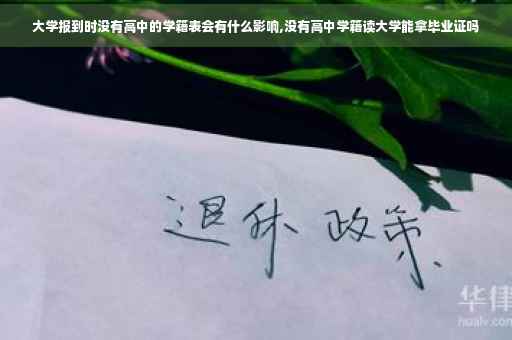 大学报到时没有高中的学籍表会有什么影响,没有高中学籍读大学能拿毕业证吗
退休 政策
华律
hualv.com